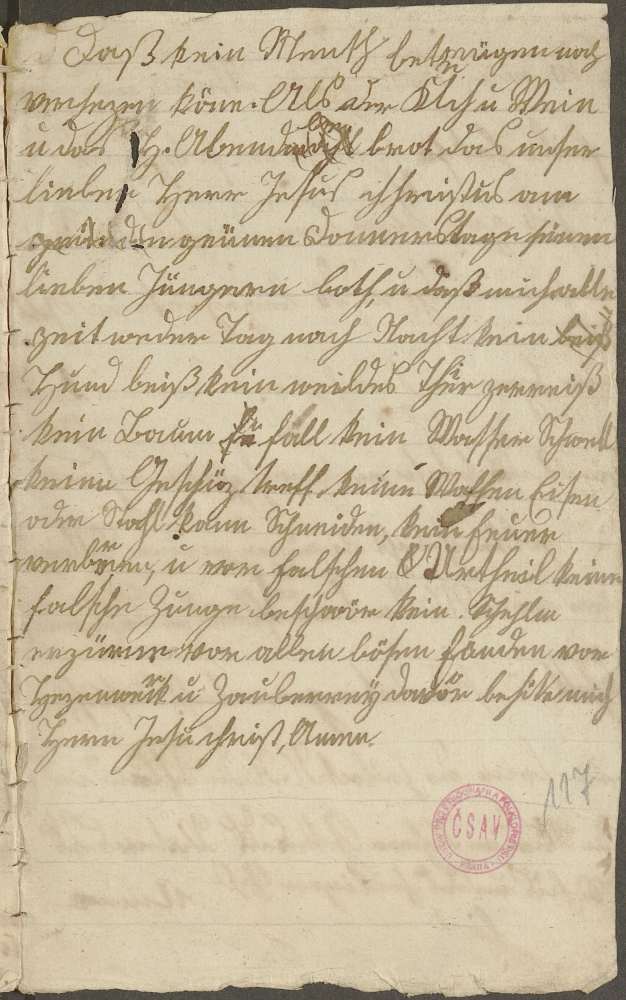 Daß kein Mensch betrügen noch
verhezen köne. Als der Kelch u Wein
u das H. Abendmahl brot das unser
lieber Herr Jesus chhristus am
grünen Donnerstage seinen
lieben Jüngern both, u daß mich alle
zeit weder Tag nach Nacht kein
Hund beiß kein weildes Thür zerreiß
kein Baum fall kein Wasser Schwell
keine Geschöz treff. keine Waffen Eisen
oder Stahl kann Schneiden, kein feuer
verbren, u vor falschen Urtheil keine
falsche Zunge beschwör kein. Schelm
erzürne vor allen bösen fänden vor
Hezenwerk u Zauberrey davör behüte mich
Herr Jesu christ, Amen.
117
ČSAV
PRAHA